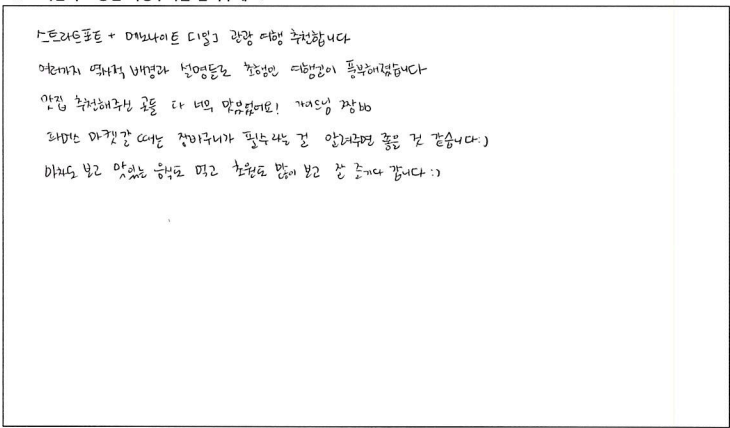 스트라트포트 + 메노나이트 [1일] 관광 여행 추천합니다
여러가지 역사적 배경과 설명들로 초행인 여행길이 풍부해졌습니다
맛집 추천해주신 곳들 다 너무 맛있었어요! 가이드님 짱bb
파머스 마켓갈 때는 장바구니가 필수라는 걸 알려주면 좋을 것 같습니다:)
마차도 보고 맛있는 음식도 먹고 초원도 많이 보고 잘 즐기다 갑니다 :)